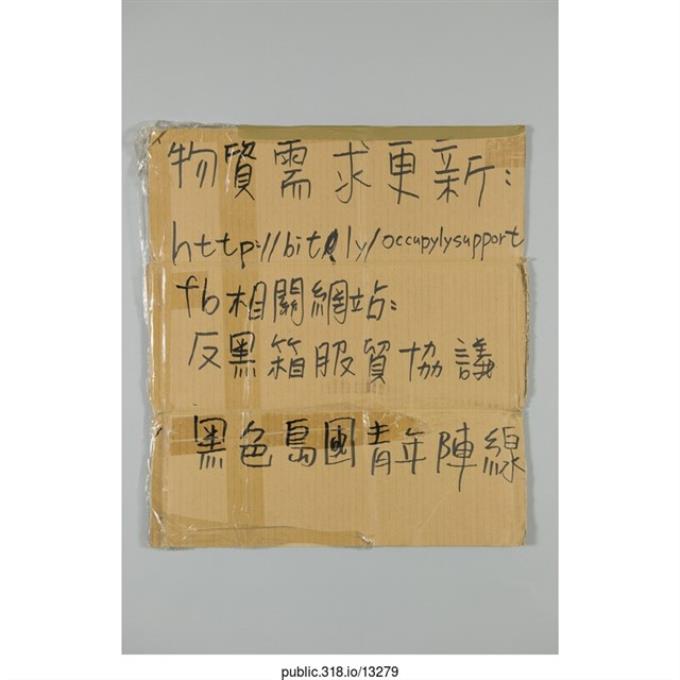 物質需求更新:
http://bit.ly/occupylysupport
fb相關網站:
反黑箱服貿協議
黑色島國青年陣線
public.318.io/13279